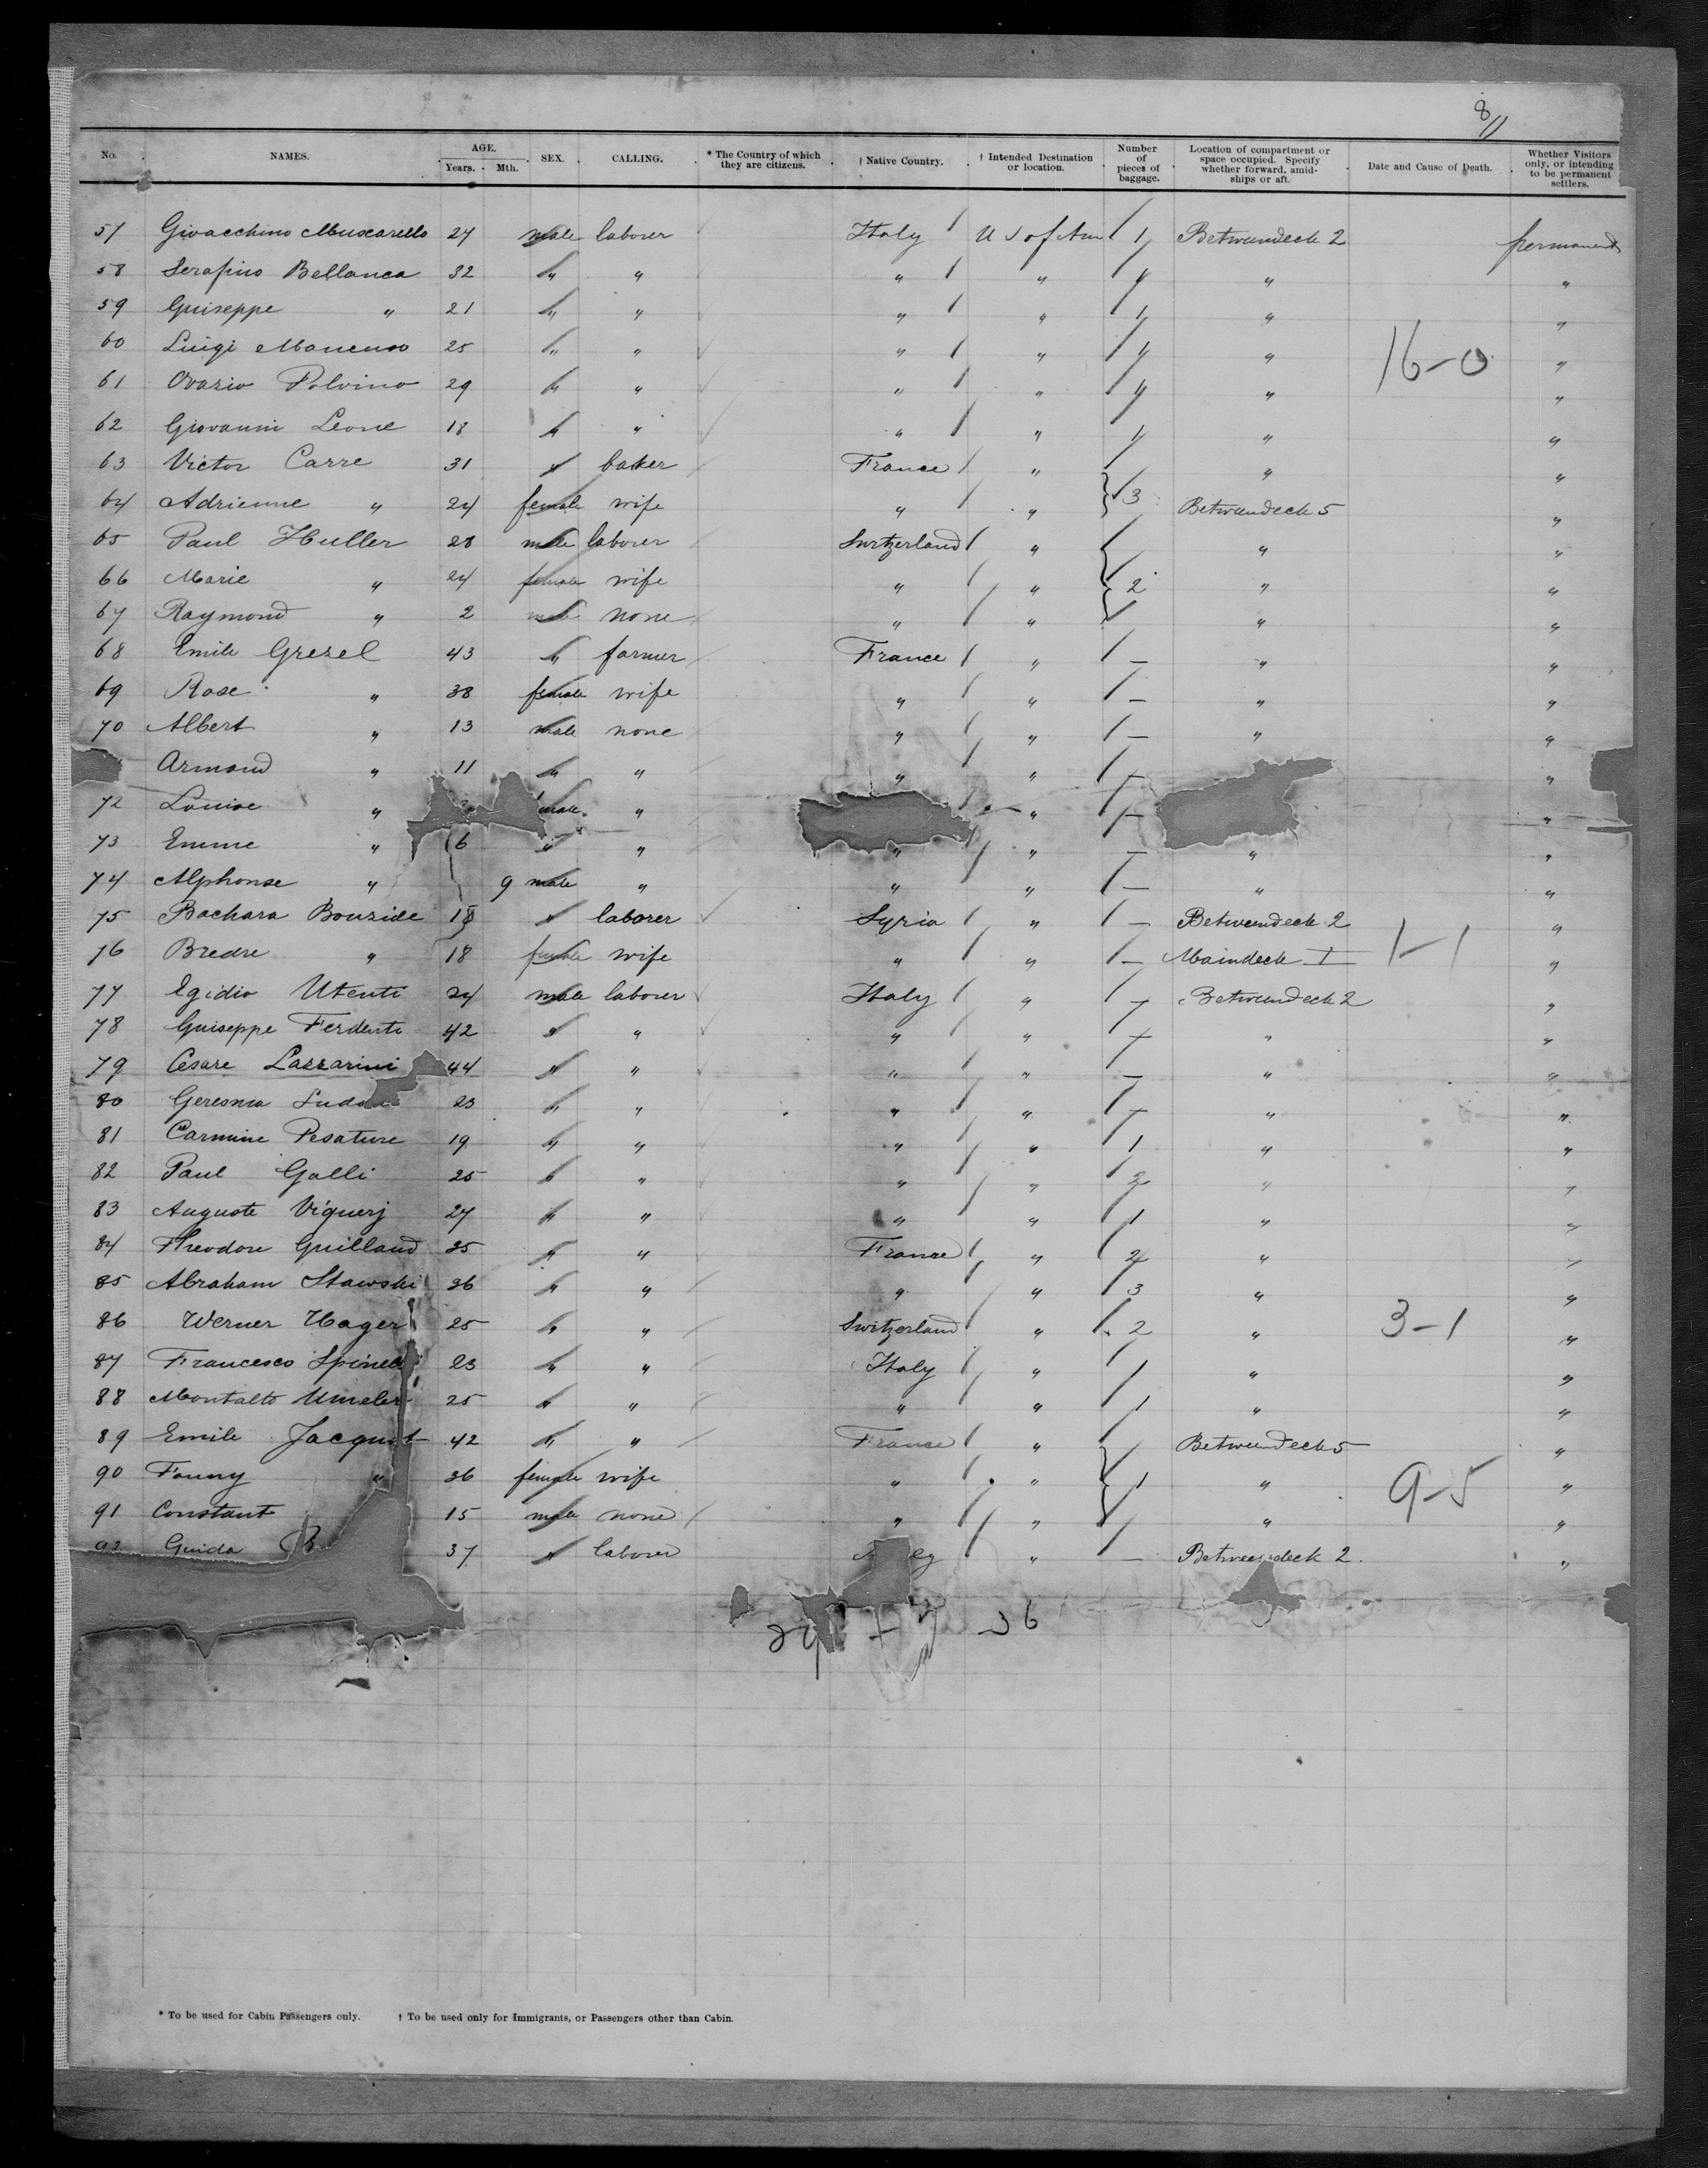 8/11
No. NAMES. AGE. Years. Mth. SEX. CALLING. * The Country of which they are citizens. † Native Country. † Intended Destination or location. Number of pieces of baggage. Location of compartment or space occupied. Specify whether forward, amidships or aft. Date and Cause of Death. Whether Visitors only, or intending to be permanent settlers.
57 Gioacchino Muscarello 27 male laborer Italy U S of Am 1 Betweendeck 2 permanent
58 Serafino Bellanca 32 " " " " 1 " "
59 Guiseppe " 21 " " " " 1 " "
60 Luigi 25 " " " " 1 " 16-0 "
61 Ovazio Polvino 29 " " " " 1 " "
62 Giovanni Leone 18 " " " " 1 " "
63 Victor Carre 31 " baker France " " "
64 Adrienne " 24 female wife " " 3 Betweendeck 5 "
65 Paul Huller 28 male laborer Switzerland " " "
66 Marie " 24 female wife " " 2 " "
67 Raymond " 2 male none " " " "
68 Emile Grezel 43 " farmer France " — " "
69 Rose " 38 female wife " " — " "
70 Albert " 13 male none " " — " "
Armand " 11 " " " " — "
72 Louise " male " " — "
73 Emme " 6 " " " " — " "
74 Alphonse " 9 male " " " — " "
75 Bachara Bouzide 18 " laborer Syria " — Betweendeck 2 "
76 Bredre " 18 female wife " " — Maindeck I 1-1 "
77 Egidio Utenti 24 male laborer Italy " — Betweendeck 2 "
78 Guiseppe Ferdenti 42 " " " " — " "
79 Cesare Lazzarini 44 " " " " — " "
80 23 " " " " — " "
81 Carmine Pesature 19 " " " " 1 " "
82 Paul Galli 25 " " " " 2 " "
83 Auguste Viguerj 27 " " " " 1 " "
84 Theodore Guilland 35 " " France " 2 " "
85 Abraham Stawski 36 " " " " 3 " "
86 Werner Hager 25 " " Switzerland " 2 " 3-1 "
87 Francesco Spinelli 23 " " Italy " 1 " "
88 Montalto 25 " " " " 1 " "
89 Emile Jacquot 42 " " France " Betweendeck 5 "
90 Fanny " 36 female wife " " 1 " 9-5 "
91 Constant 15 male none " " " "
92 Guida B 37 " laborer " — Betweendeck 2. "
36
* To be used for Cabin Passengers only. † To be used only for Immigrants, or Passengers other than Cabin.